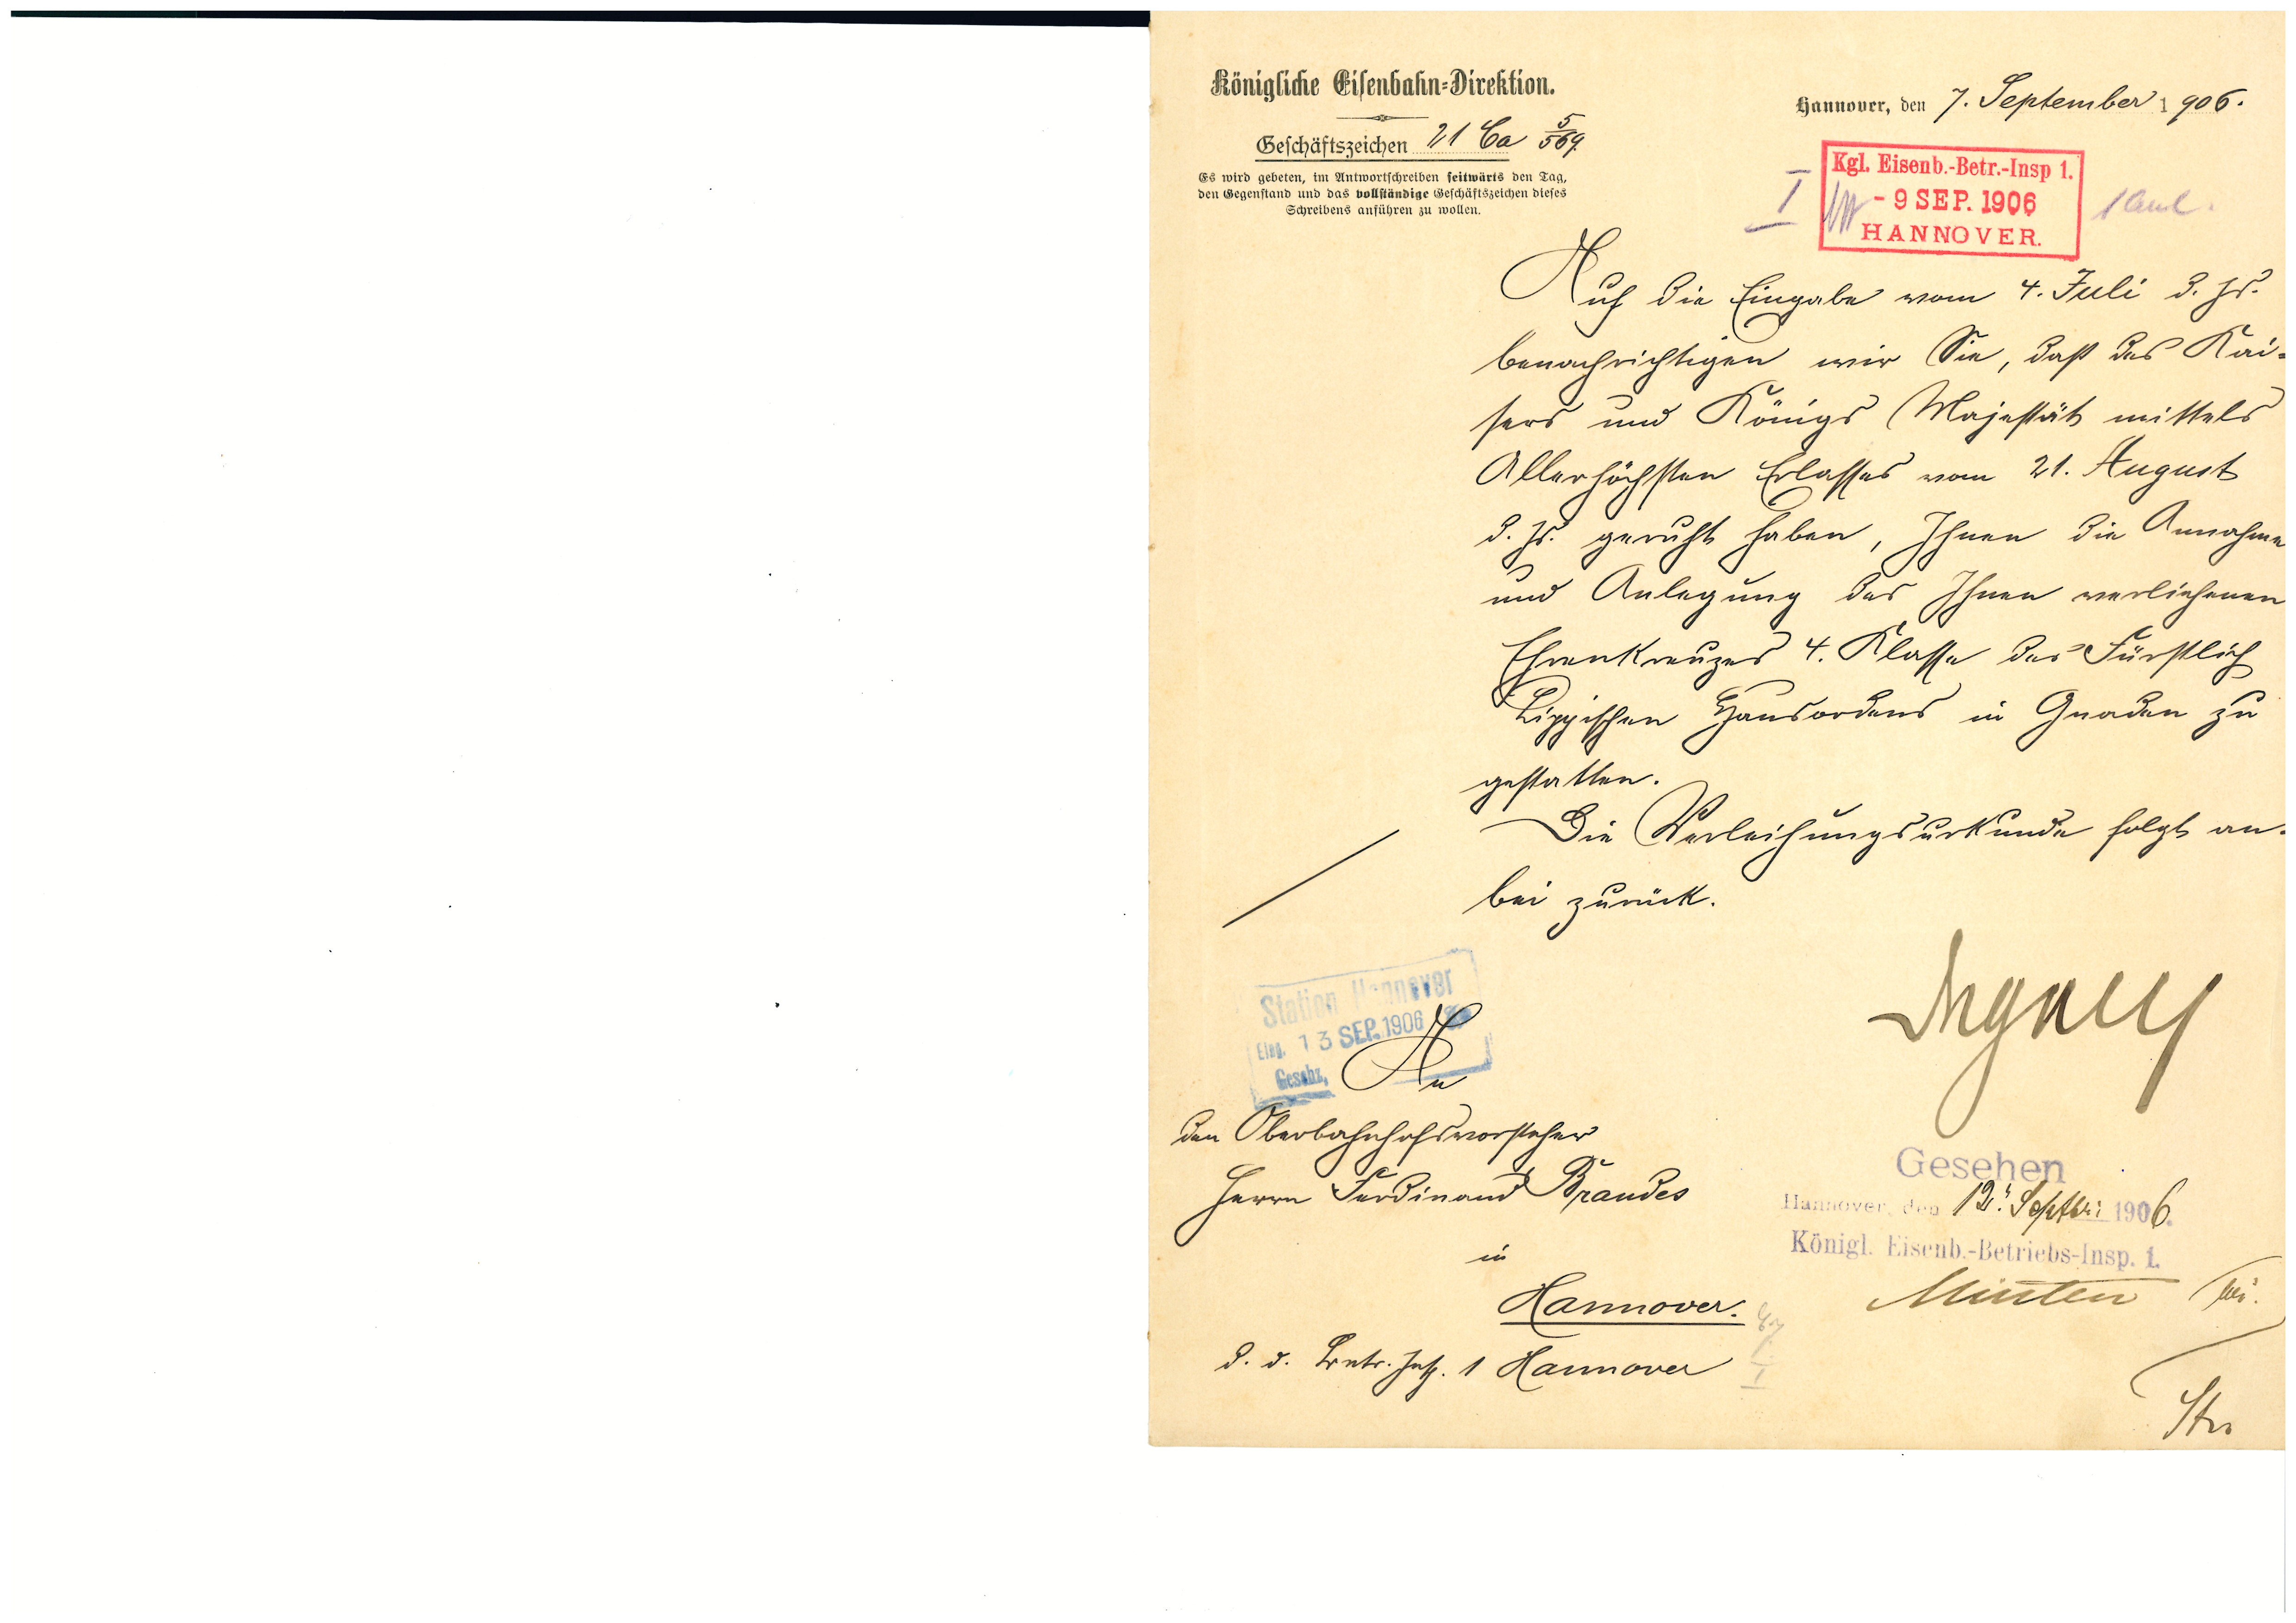 Königliche Eisenbahn-Direktion.
Hannover, den 7. September 1906.
Geschäftszeichen 21 Ca 5/569.
Es wird gebeten, im Antwortschreiben seitwärts den Tag,
den Gegenstand und das vollständige Geschäftszeichen dieses
Schreibens anführen zu wollen.
Kgl. Eisenb.-Betr.-Insp 1.
- 9 SEP. 1906
HANNOVER.
I
1 Anl.
Auf die Eingabe vom 4. Juli d. Js.
benachrichtigen wir Sie, daß des Kai-
sers und Königs Majestät mittels
Allerhöchsten Erlasses vom 21. August
d. Js. geruht haben, Ihnen die Annahme
und Anlegung des Ihnen verliehenen
Ehrenkreuzes 4. Klasse des Fürstlich
Lippischen Hausordens in Gnaden zu
gestatten.
Die Verleihungsurkunde folgt an-
bei zurück.
Station Hannover
Eing. 13 SEP. 1906
Geschz.
An
den Oberbahnhofsvorsteher
Herrn Ferdinand Brandes
in
Hannover.
d. d. Betr. Insp. 1 Hannover
Gesehen
Hannover, den 12. Septbr. 1906.
Königl. Eisenb.-Betriebs-Insp. 1.